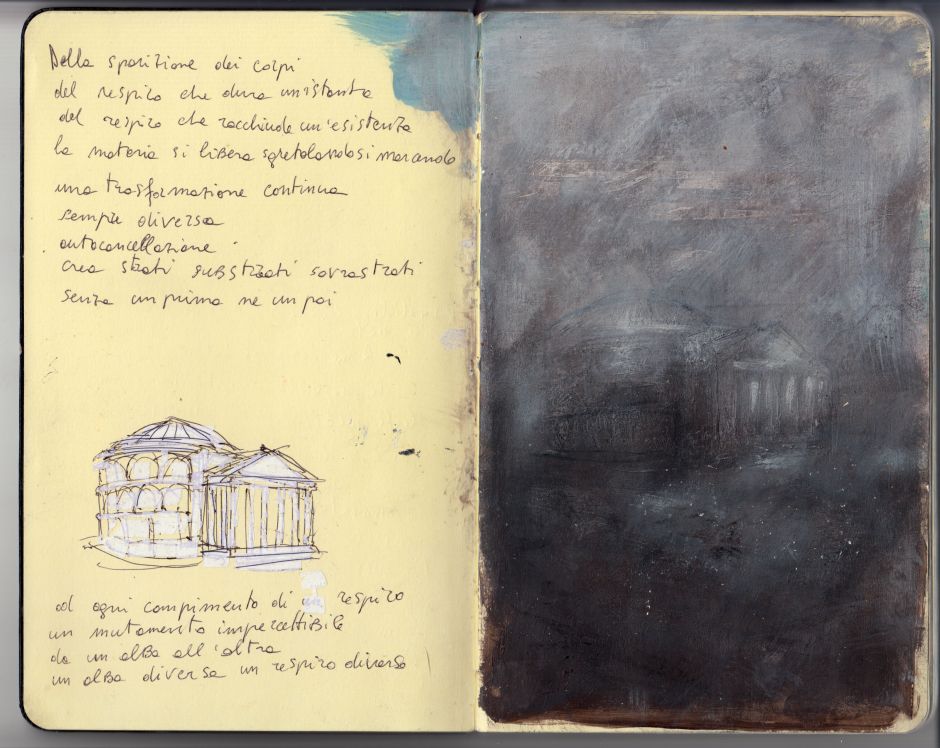 Della sparizione dei corpi
del respiro che dura un istante
del respiro che racchiude un'esistenza
la materia si libera sgretolandosi marcando
una trasformazione continua
sempre diversa
autocancellazione
crea strati substrati sovrastrati
senza un prima ne un poi
ad ogni compimento di un respiro
un mutamento impercettibile
da un alba all'altra
un alba diversa un respiro diverso